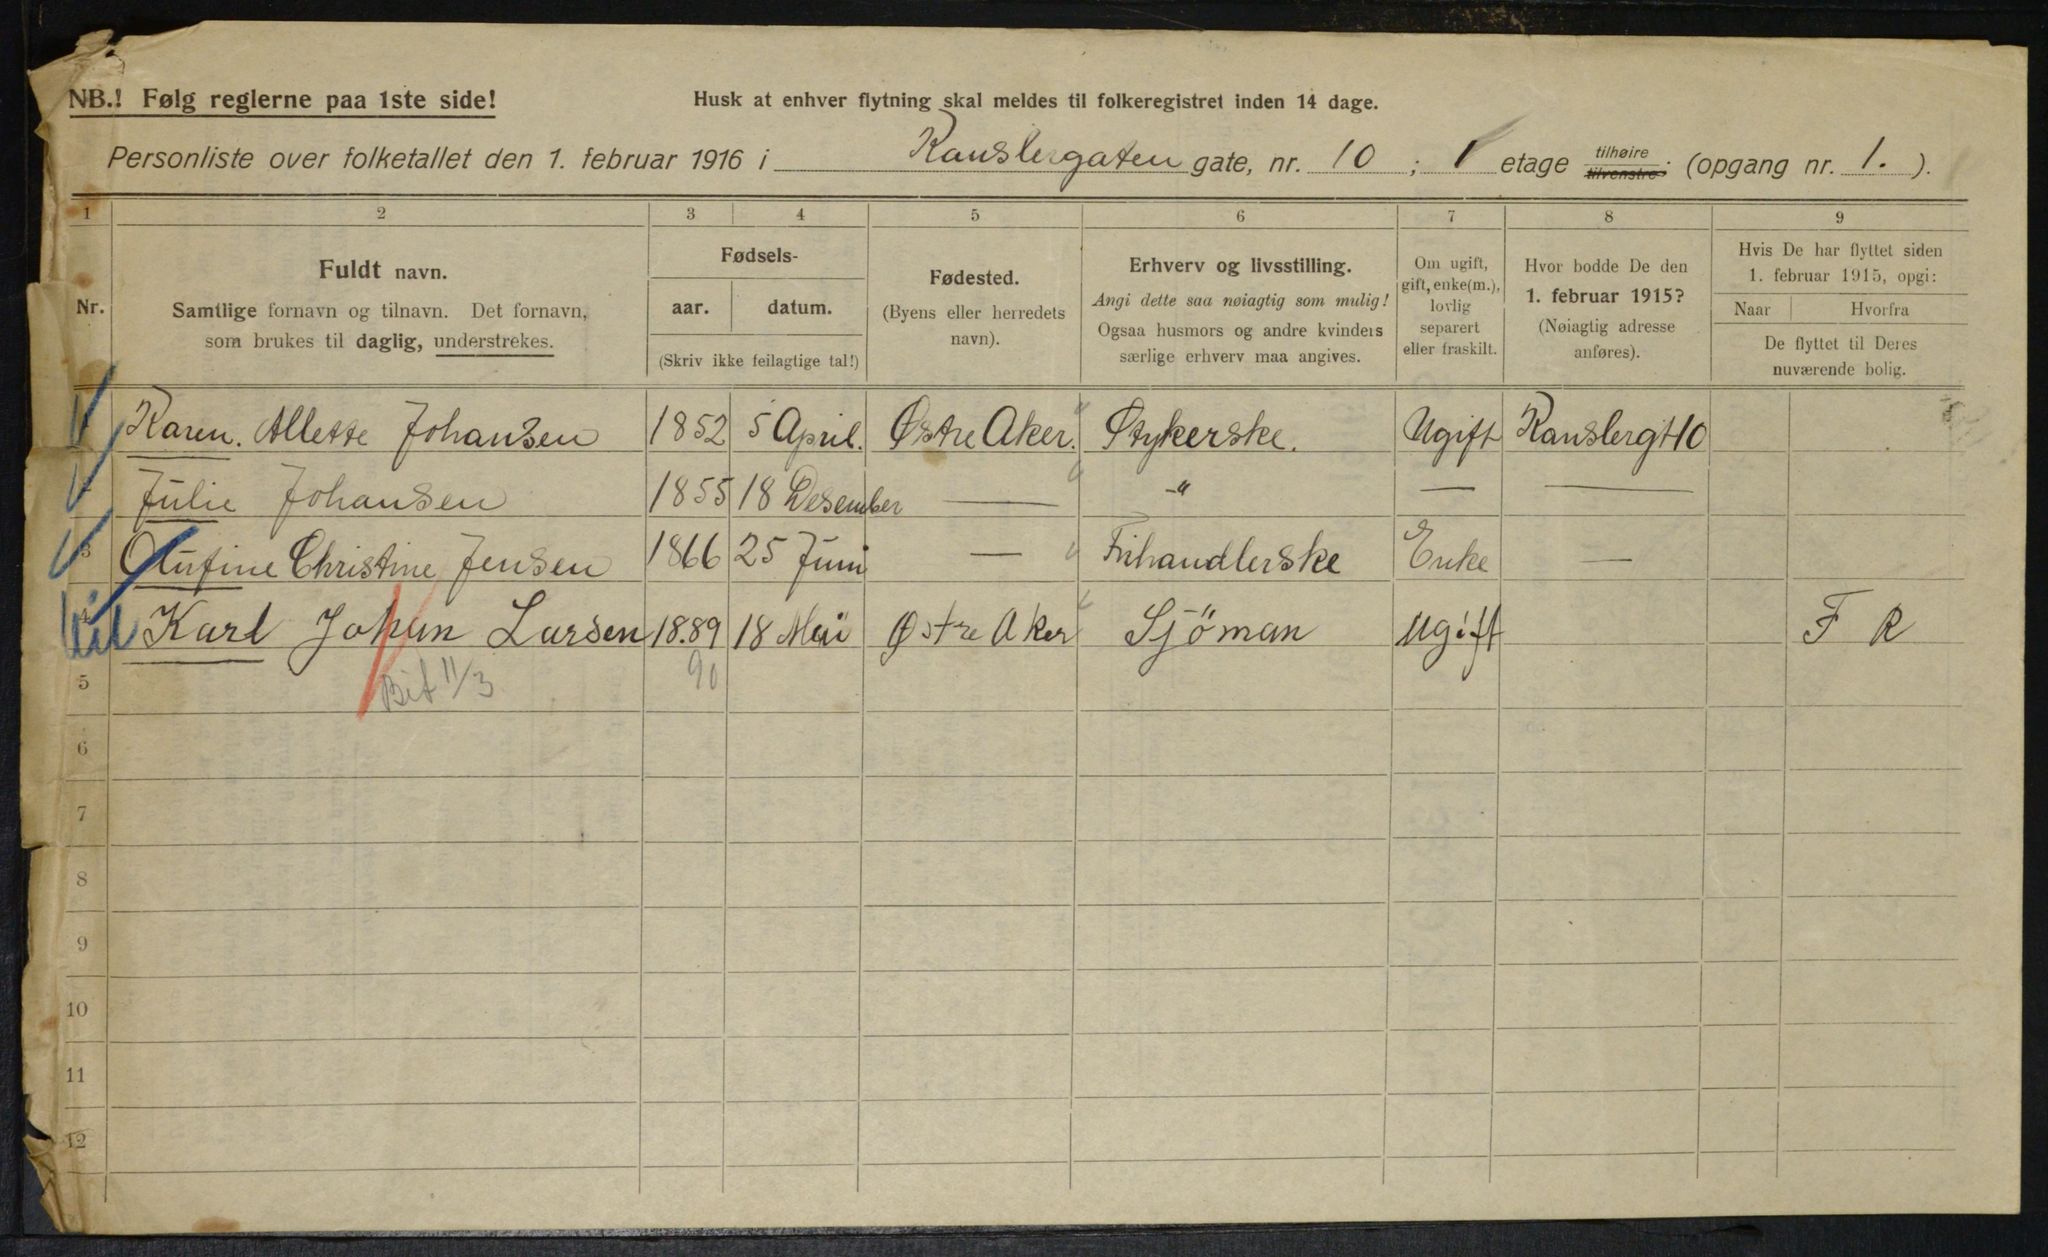 NB.! Følg reglerne paa 1ste side!
Husk at enhver flytning skal meldes til folkeregistret inden 14 dage.
Personliste over folketallet den 1. februar 1916 i Kanslergaten gate, nr. 10 ; 1 etage tilhøire tilvenstre. (opgang nr. 1. ).
1 2 3 4 5 6 7 8 9
Nr.
Fuldt navn.
Samtlige fornavn og tilnavn. Det fornavn,
som brukes til daglig, understrekes.
Fødsels-
aar. datum.
(Skriv ikke feilagtige tal!)
Fødested.
(Byens eller herredets
navn).
Erhverv og livsstilling.
Angi dette saa nøiagtig som mulig!
Ogsaa husmors og andre kvinders
særlige erhverv maa angives.
Om ugift,
gift, enke(m.),
lovlig
separert
eller fraskilt.
Hvor bodde De den
1. februar 1915?
(Nøiagtig adresse
anføres).
Hvis De har flyttet siden
1. februar 1915, opgi:
Naar Hvorfra
De flyttet til Deres
nuværende bolig.
Karen. Allette Johansen 1852 5 April. Østre Aker. Stykerske. Ugift Kanslergt 10
Julie Johansen 1855 18 Desember — –„ — —
3 Olufine Christine Jensen 1866 25 Juni — Frihandlerske Enke —
4 Karl Johan Larsen 18.89 18 Mai Østre Aker Sjöman Ugift F R
5 11/3 90
6
7
8
9
10
11
12